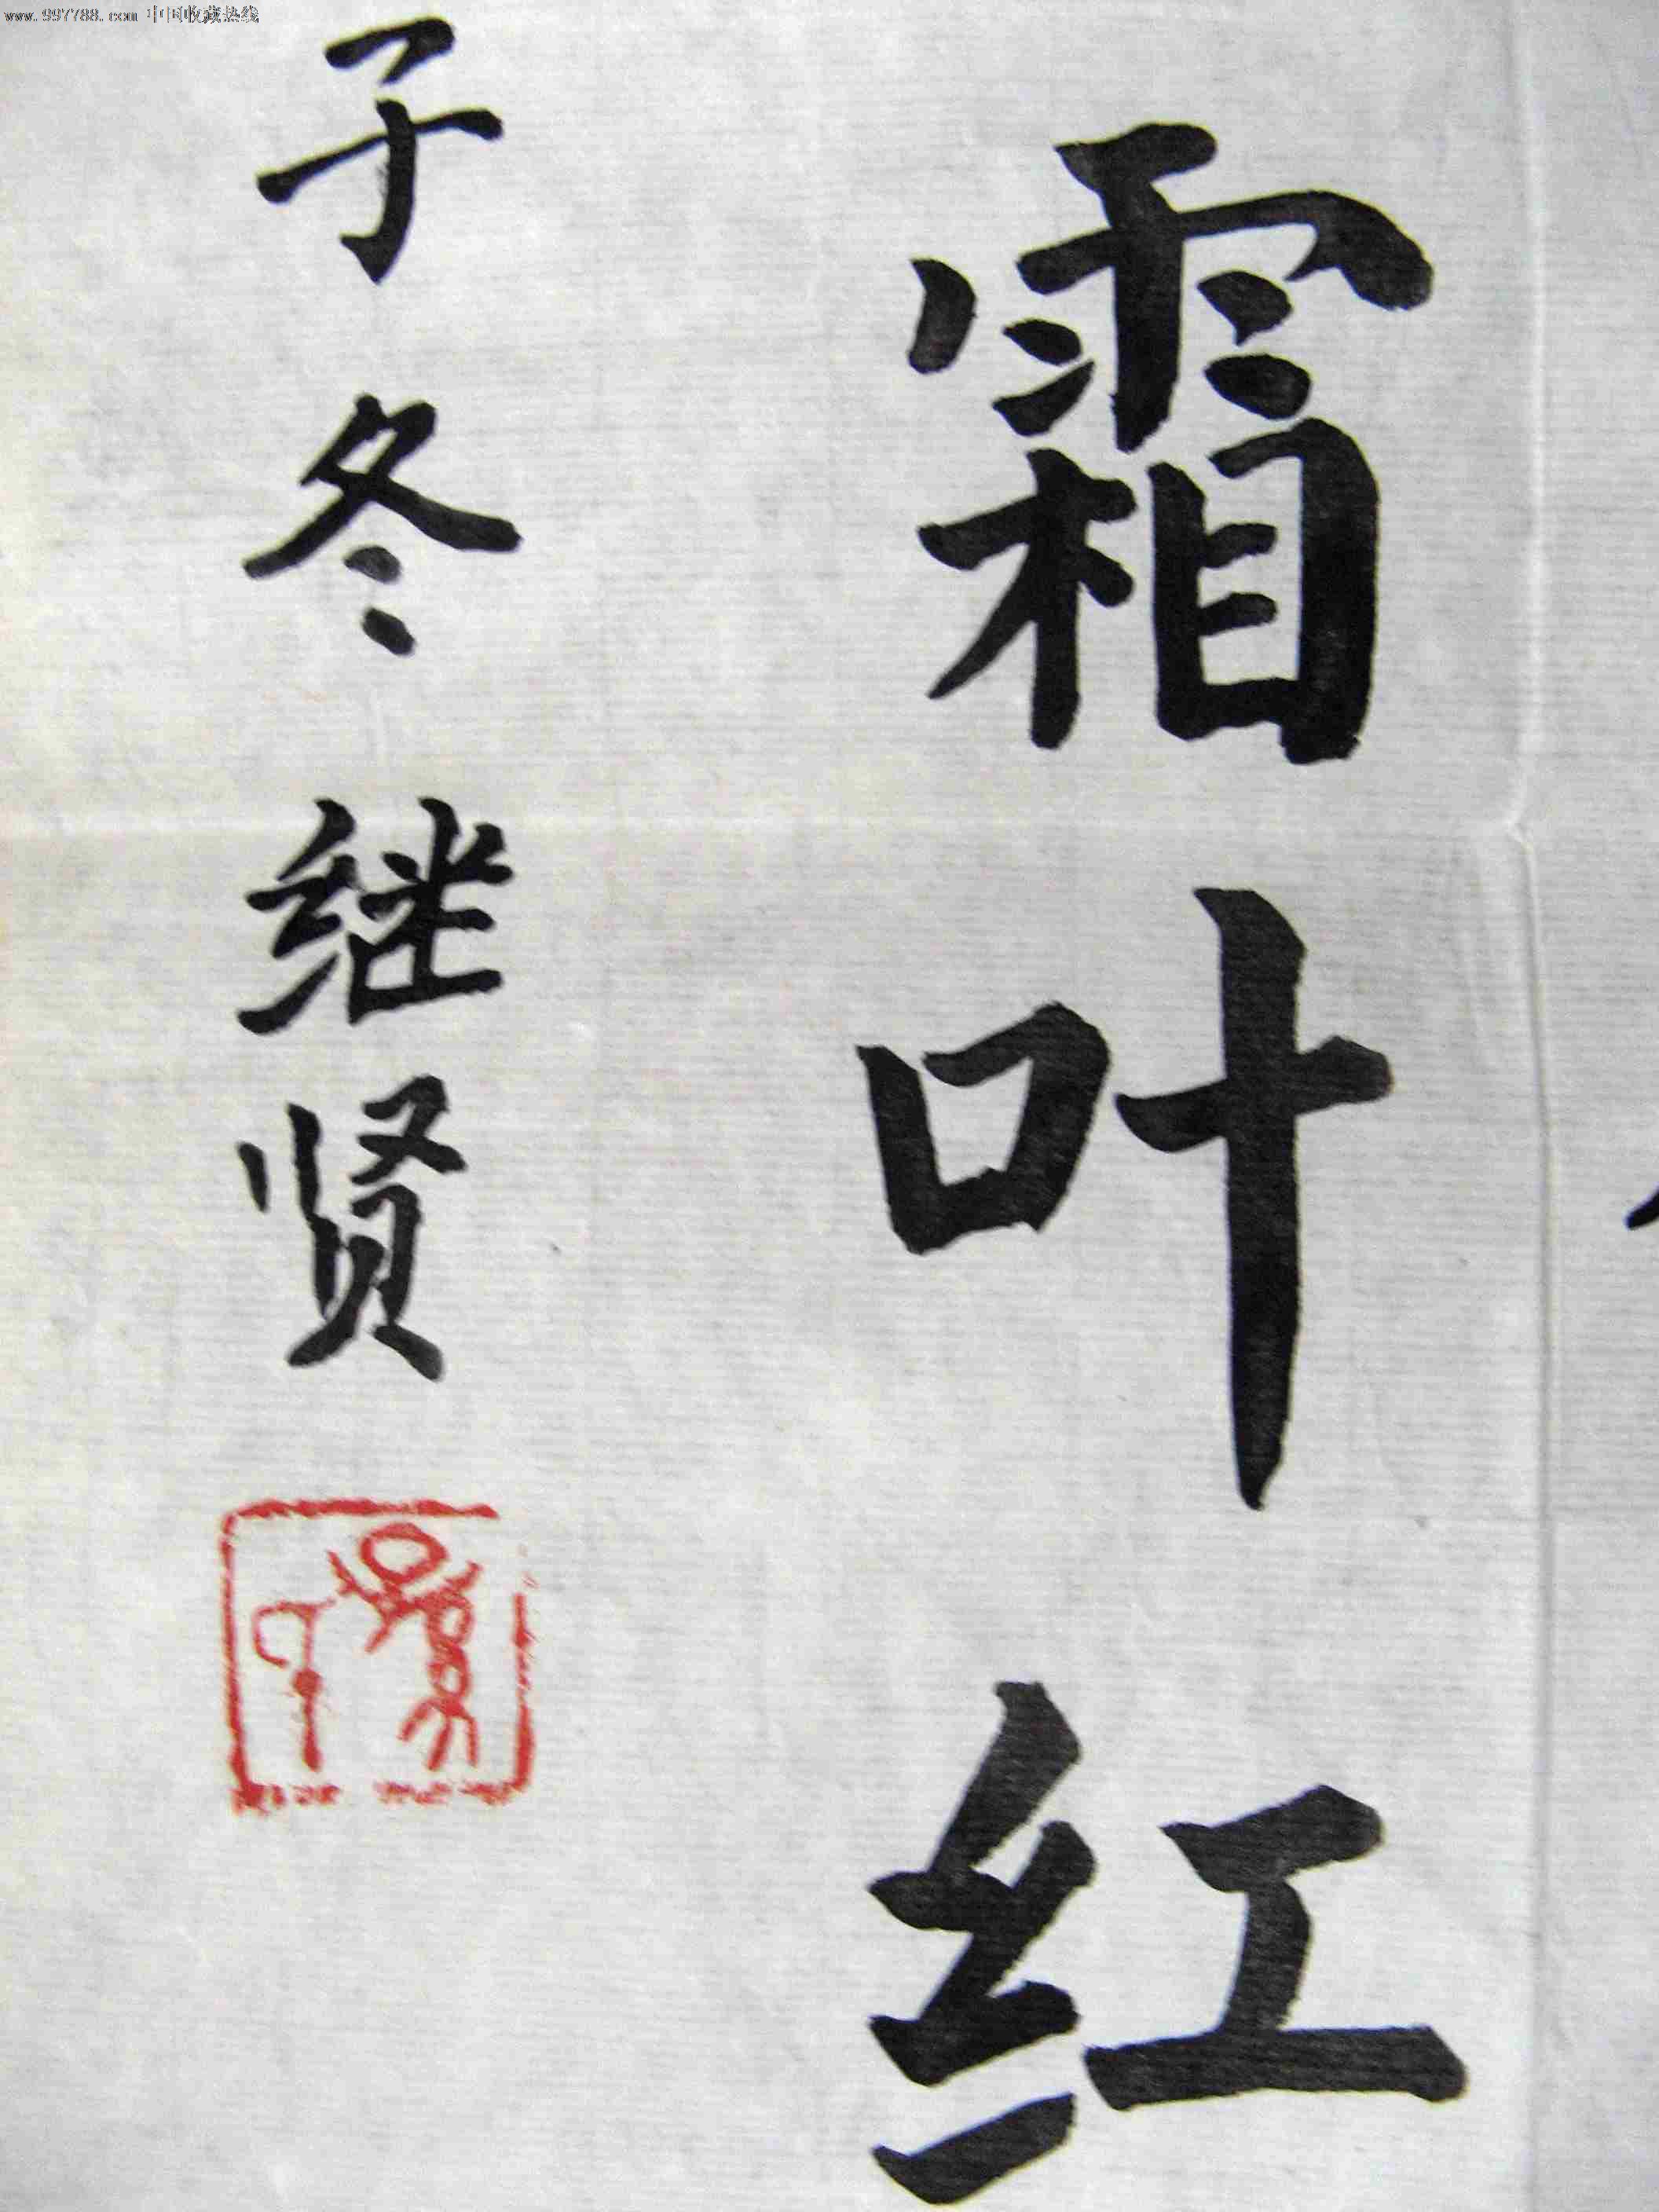 www.997788.com 中国收藏热线
霜叶红
子冬继贤